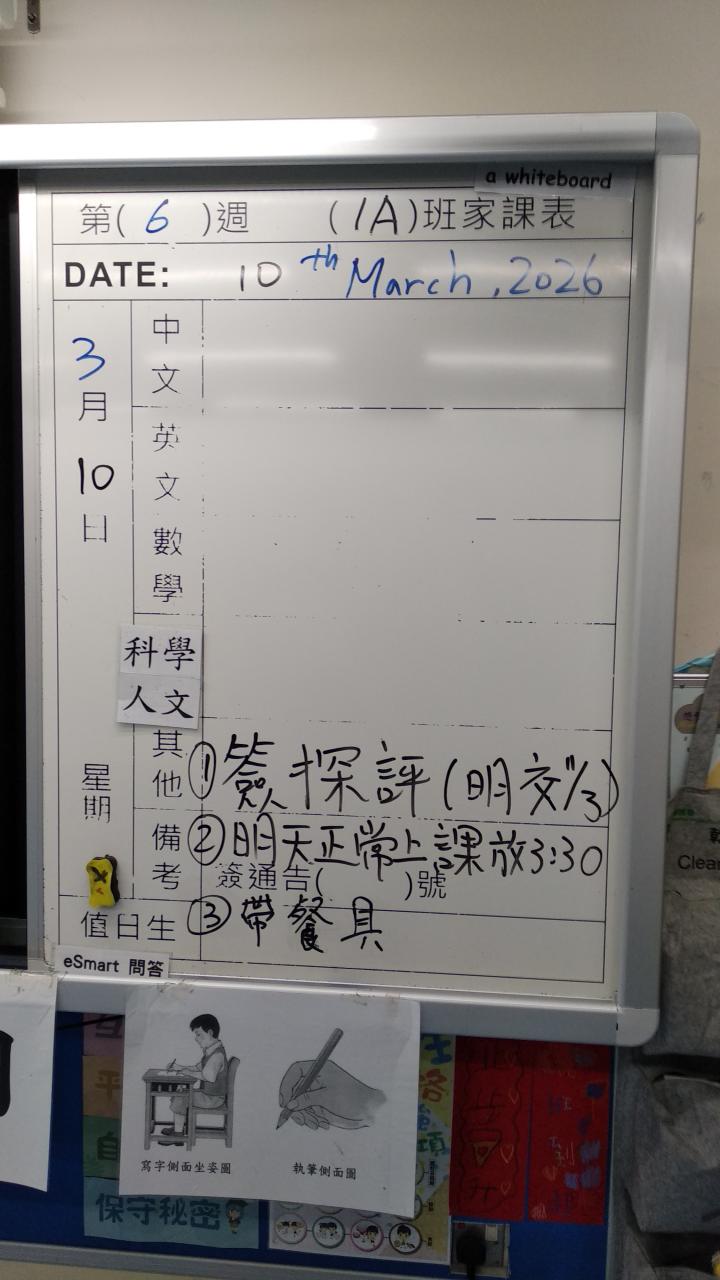 a whiteboard
第(6)週 (1A)班家課表
DATE: 10th March, 2026
3月10日
星期
中文
英文
數學
科學
人文
其他
①簽探評(明交11/3)
備考
②明天正常上課放3:30
簽通告( )號
值日生
③帶餐具
eSmart 問答
寫字側面坐姿圖
執筆側面圖
保守秘密
Clean